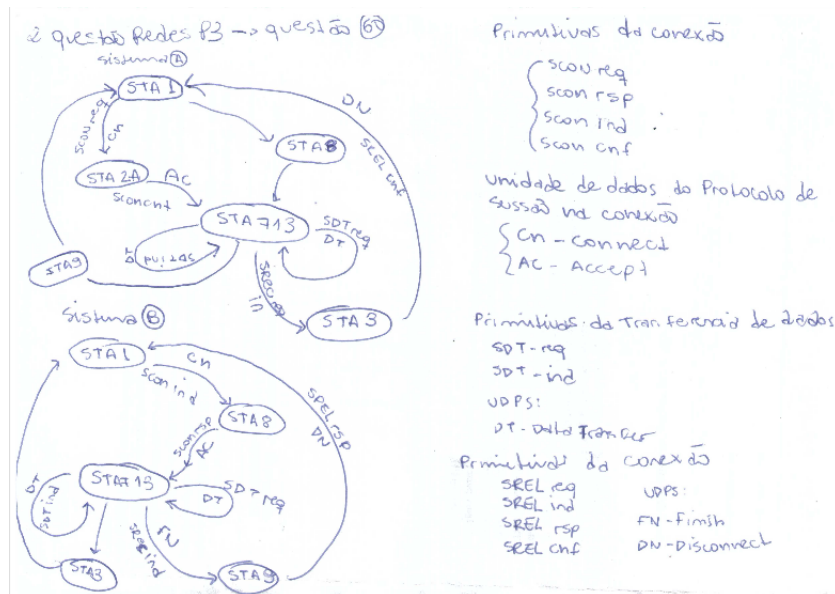 2 questão Redes P3 -> questão 6
sistema A
STA 1
SCON req
Cn
STA 8
STA 2A
AC
Sconcnf
STA 713
SDT req
DT
STA9
STA 3
DN
SREL cnf
Sistema B
STA1
Cn
Scon ind
STA 8
Scon rsp
AC
STA713
SDT req
DT
DT
SDT ind
FN
STA3
STA9
SREL rsp
DN
Primitivas da conexão
SCON req
scon rsp
scon ind
scon cnf
Unidade de dados do Protocolo de
sussão na conexão
Cn - connect
AC - Accept
Primitivas da Tranferencia de dados
SDT-req
SDT-ind
UDPS:
DT-Data Transfer
Primitivas da conexão
SREL req UDPS:
SREL ind
SREL rsp FN-Finish
SREL cnf DN-Disconnect